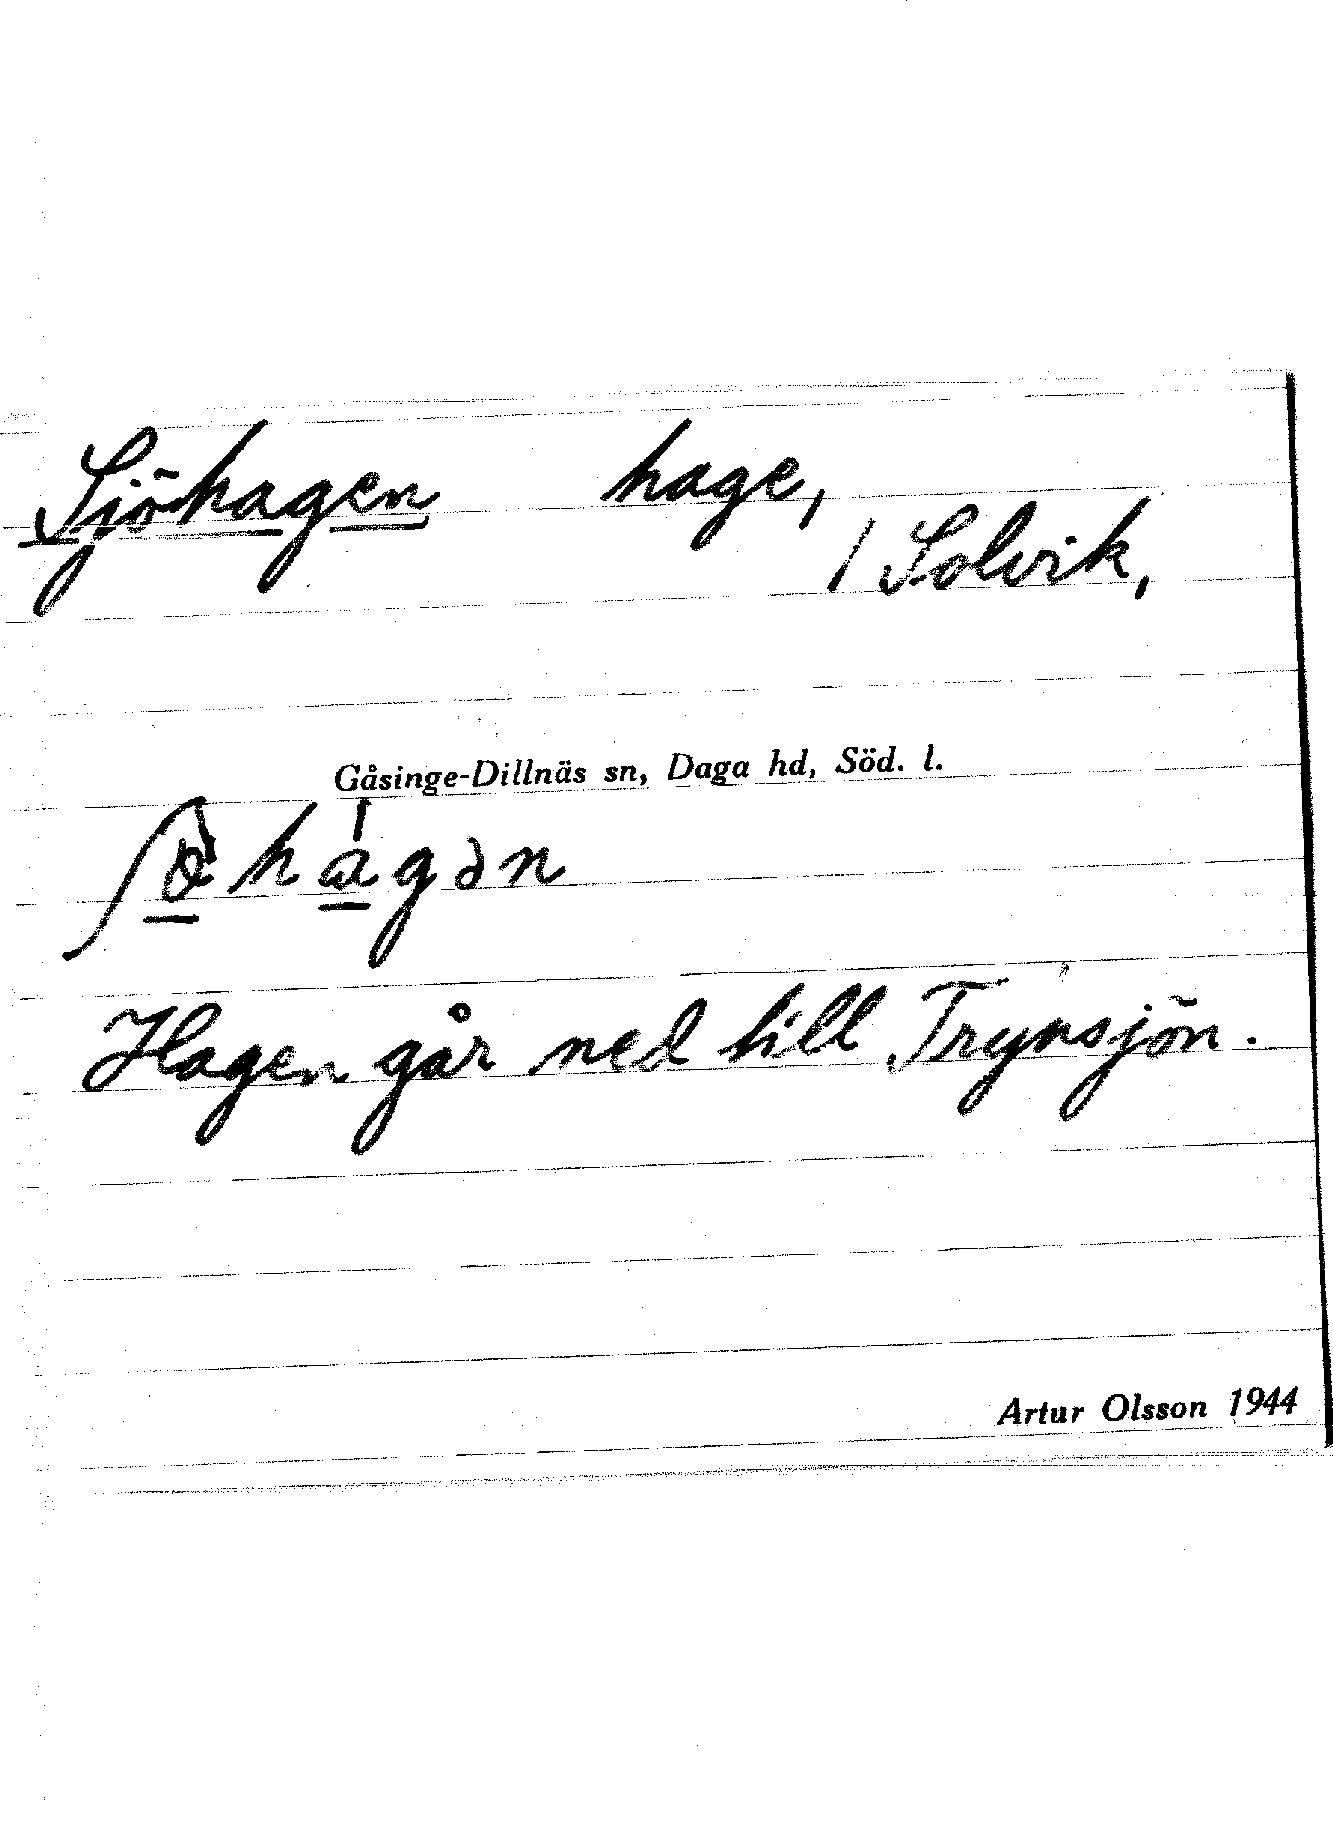 Sjöhagen hage,
/ Solvik,
Gåsinge-Dillnäs sn, Daga hd, Söd. l.
ʃö̀hágən
Hagen går ned till Trynsjön.
Artur Olsson 1944